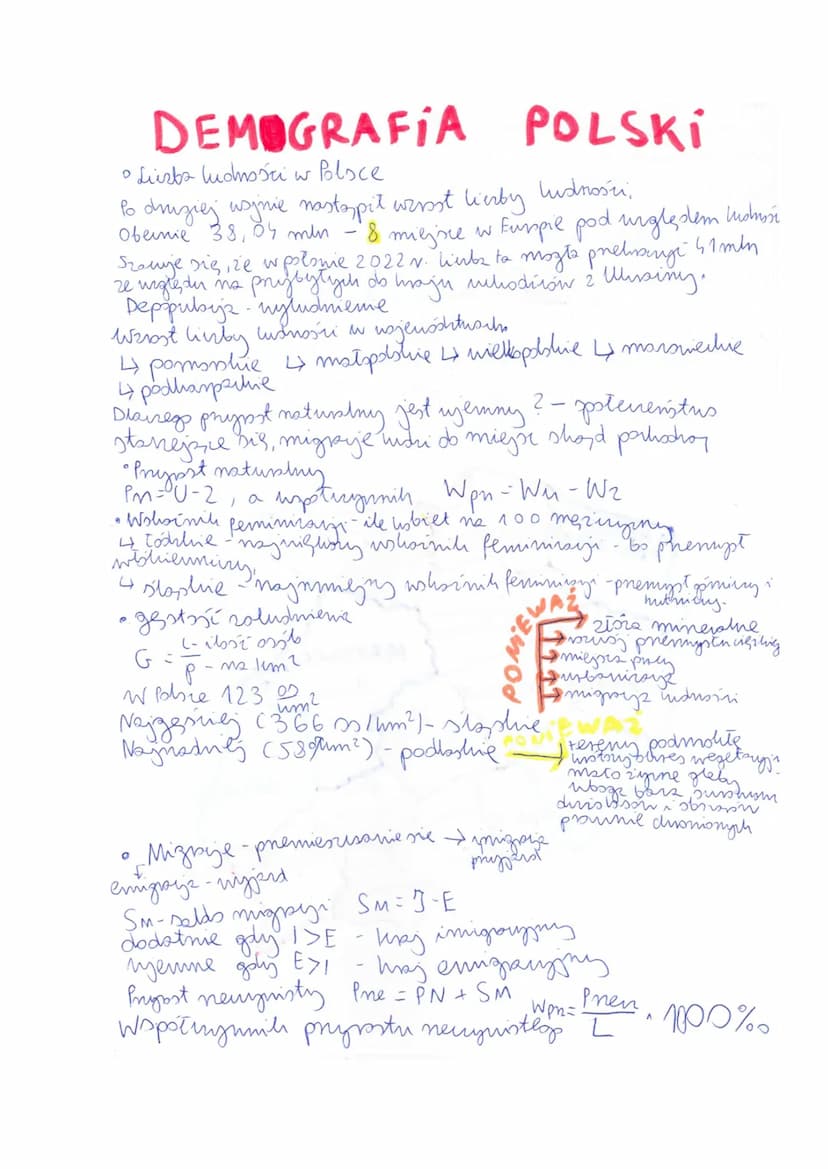 DEMOGRAFIA POLSKI
• Liczba ludności w Polsce
Po drugiej wojnie nastąpił wzrost liczby ludności.
Obecnie 38,04 mln - 8 miejsce w Europie pod względem ludności
Szacuje się, że w połowie 2022 r. liczba ta mogła przekroczyć 41 mln
ze względu na przybyłych do kraju uchodźców z Ukrainy.
Depopulacja - wyludnienie
Wzrost liczby ludności w województwach
↳ pomorskie ↳ małopolskie ↳ wielkopolskie ↳ mazowieckie
↳ podkarpackie
Dlaczego przyrost naturalny jest ujemny? - społeczeństwo
starzejące się, migracje ludzi do miejsc skąd pochodzą
• Przyrost naturalny
Pn = U - Z, a współczynnik Wpn = Wu - Wz
• Wskaźnik feminizacji - ile kobiet na 100 mężczyzn
↳ łódzkie - największy wskaźnik feminizacji - bo przemysł
włókienniczy,
↳ śląskie - najmniejszy wskaźnik feminizacji - przemysł górniczy i
hutniczy.
• gęstość zaludnienia
G = L - ilość osób / P - na 1 km²
W Polsce 123 os/km²
PONIEWAŻ
→ złoża mineralne
→ rozwój przemysłu ciężkiego
→ miejsca pracy
→ urbanizacja
→ migracje ludności
Najgęściej (366 os/km²) - śląskie
Najrzadziej (58 os/km²) - podlaskie PONIEWAŻ
→ tereny podmokłe
krótszy okres wegetacji
mało żyzne gleby
uboga baza surowcowa
obszarów
prawnie chronionych
• Migracje - przemieszczanie się → imigracja
przyjazd
↓
emigracja - wyjazd
SM - saldo migracji SM = I - E
dodatnie gdy I > E - kraj imigracyjny
ujemne gdy E > I - kraj emigracyjny
Przyrost rzeczywisty Prze = PN + SM
Współczynnik przyrostu rzeczywistego Wpn = Przecz / L · 1000‰